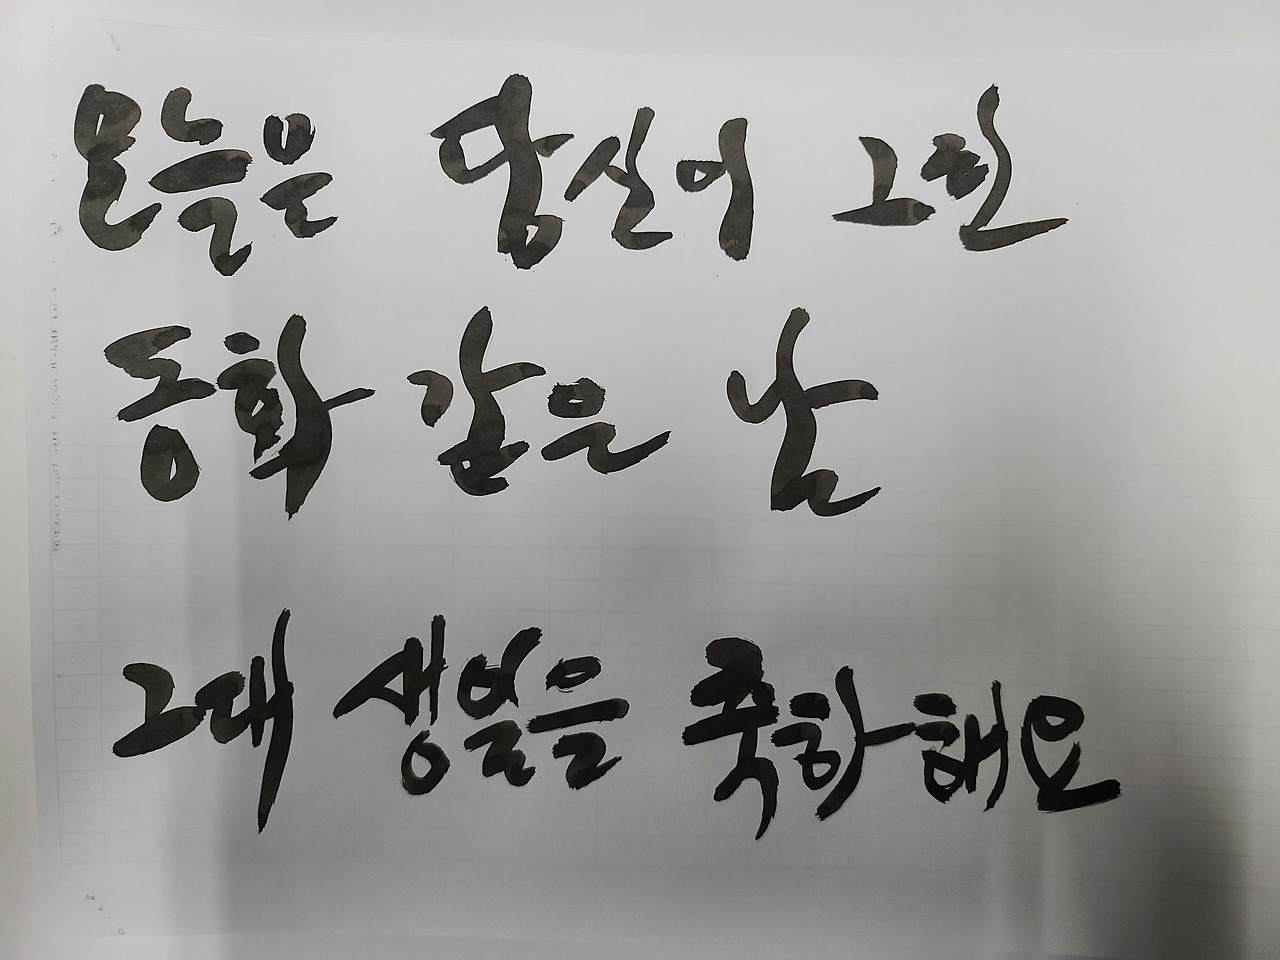 오늘은 당신이 그린
동화 같은 날
그대 생일을 축하해요